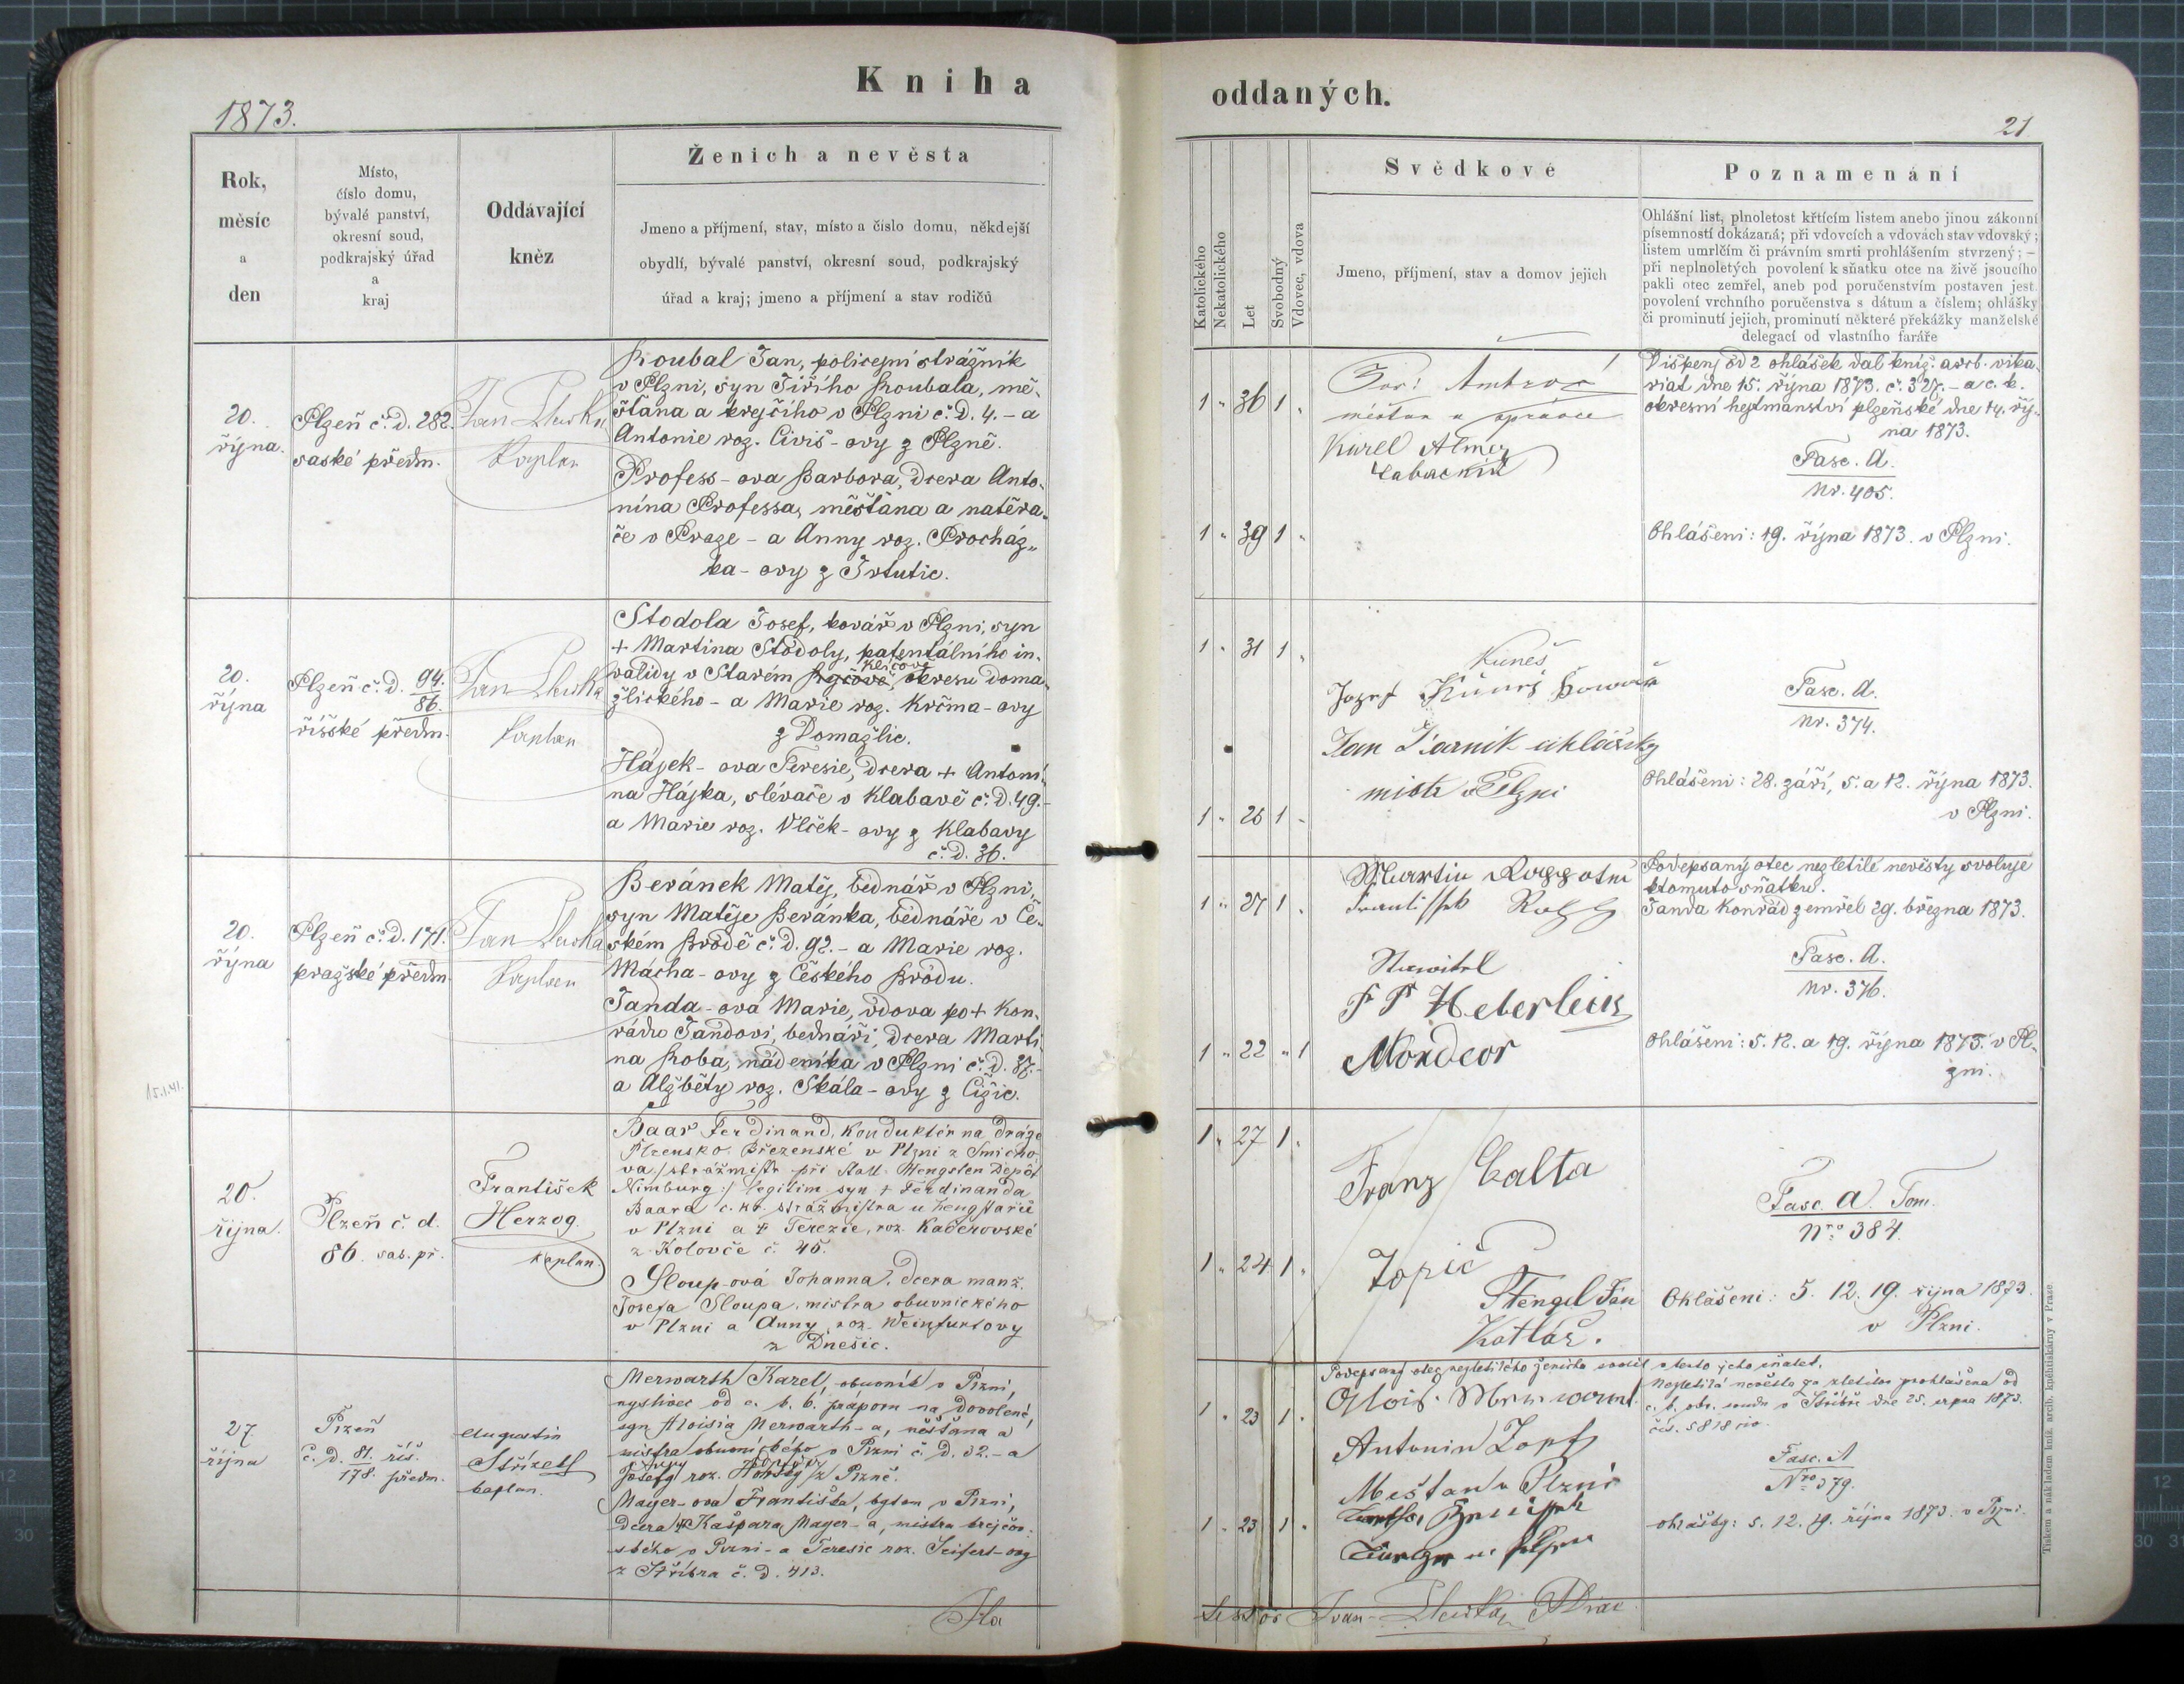 Kniha
oddaných.
1873.
21
Rok,
měsíc
a
den
Místo,
číslo domu,
bývalé panství,
okresní soud,
podkrajský úřad
a
kraj
Oddávající
kněz
Ženich a nevěsta
Jmeno a příjmení, stav, místo a číslo domu, někdejší
obydlí, bývalé panství, okresní soud, podkrajský
úřad a kraj; jmeno a příjmení a stav rodičů
Katolického
Nekatolického
Let
Svobodný
Vdovec, vdova
Svědkové
Jmeno, příjmení, stav a domov jejich
Poznamenání
Ohlášní list, plnoletost křtícím listem anebo jinou zákonní
písemností dokázaná; při vdovcích a vdovách stav vdovský;
listem umrlčím či právním smrti prohlášením stvrzený; –
při neplnoletých povolení k sňatku otce na živě jsoucího
pakli otec zemřel, aneb pod poručenstvím postaven jest
povolení vrchního poručenstva s dátum a číslem; ohlášky
či prominutí jejich, prominutí některé překážky manželské
delegací od vlastního faráře
20.
října.
Plzeň č. d. 282.
saské předm.
Jan
Kaplan
Koubal Jan, policejní strážník
v Plzni, syn Jiřího Koubala, mě-
šťana a krejčího v Plzni č. D. 4. – a
Antonie roz. Civiš-ovy z Plzně.
Profess-ova Barbora, dcera Anto-
nína Professa, měšťana a natěra-
če v Praze – a Anny roz. Procház-
ka-ovy z Trtutic.
1 " 36 1 "
1 " 39 1 "
Jos: Ambrož
měšťan a správce
Karel
Dispenz od 2 ohlášek dal kníž. arcb. vika-
riat dne 15. října 1873. č. 327. – a c. k.
okresní hejtmanství plzeňské dne 14. říj-
na 1873.
Fasc. A.
Nr. 405.
Ohlášení: 19. října 1873. v Plzni.
20.
října
Plzeň č. D. 94.
86.
říšské předm.
Jan
Kaplan
Stodola Josef, kovář v Plzni, syn
+ Martina Stodoly, patentálního in-
Klíčově
validy v Starém okresu doma-
žlického – a Marie roz. Krčma-ovy
z Domažlic.
Hájek-ova Teresie, dcera + Antoní-
na Hájka, slévače v Klabavě č. D. 49. –
a Marie roz. Vlček-ovy z Klabavy
č. D. 36.
1 " 31 1 "
1 " 26 1 "
Kuneš
Jozef Kuneš
Jan
mistr v Plzni
Fasc. A.
Nr. 374.
Ohlášení: 28. září, 5. a 12. října 1873.
v Plzni.
20.
října
Plzeň č. D. 171.
pražské předm.
Jan
Kaplan
Beránek Matěj, bednář v Plzni,
syn Matěje Beránka, bednáře v Če-
ském Brodě č. D. 92. – a Marie roz.
Mácha-ovy z Českého Brodu.
Janda-ová Marie, vdova po + Kon-
rádu Jandovi, bednáři, dcera Marti-
na Koba, nádeníka v Plzni č. D. 87. –
a Alžběty roz. Skála-ovy z Čižic.
15.1.41.
1 " 27 1 "
1 " 22 " 1
Martin
Stavitel
Podepsaný otec nezletilé nevěsty svoluje
ktomuto sňatku.
Janda Konrád zemřel 29. března 1873.
Fasc. A.
Nr. 376.
Ohlášení: 5. 12. a 19. října 1873. v Pl-
zni.
20.
října.
Plzeň č. d.
86. sas. př.
František
Herzog
kaplan.
Baar Ferdinand, konduktér na dráze
Plzensko Březenské v Plzni z Smícho-
va /: strážmistr při Hengsten Depôt
Nimburg :/ legitim. syn + Ferdinanda
Baara c. kr. strážmistra u hengstařů
v Plzni a + Terezie, roz. Kaderovské
z Kolovče č. 45.
Sloup-ová Johanna, dcera manž.
Josefa Sloupa, mistra obuvnického
v Plzni a Anny roz. Weinfurtovy
z Dnešic.
1 " 27 1 "
1 " 24 1 "
Franz Calta
Topič
Stengel Jan
Kotlář.
Fasc. A. Tom.
Nro 384.
Ohlášení: 5. 12. 19. října 1873.
v Plzni.
27.
října
Plzeň
č. D. 81. říš.
178. předm.
Augustin
kaplan.
Merwarth Karel, obuvník v Plzni,
nyní od c. k. 6. prápom na dovolené,
syn Aloisia Merwarth-a, měšťana a
mistra obuvnického v Plzni č. D. 32. – a
Josefy roz. z Plzně.
Mayer-ova Františka, bytem v Plzni,
dcera + Kašpara Mayer-a, mistra krejčov-
ského v Plzni – a Teresie roz. Seifert-ovy
z Stříbra č. D. 413.
1 " 23 1 "
1 " 23 1 "
Podepsaný otec nezletilého ženicha svolil v tento jeho sňatek.
Antonin Zopf
Mešťan v Plzni
Nezletilá nevěsta za zletilou prohlášena od
c. k. okr. soudu v Stříbře dne 25. srpna 1873.
čís. 5818 civ.
Fasc. A
Nro 379.
ohlášky: 5. 12. 19. října 1873. v Plzni.
Tiskem a nákladem kníž. arcib. knihtiskárny v Praze